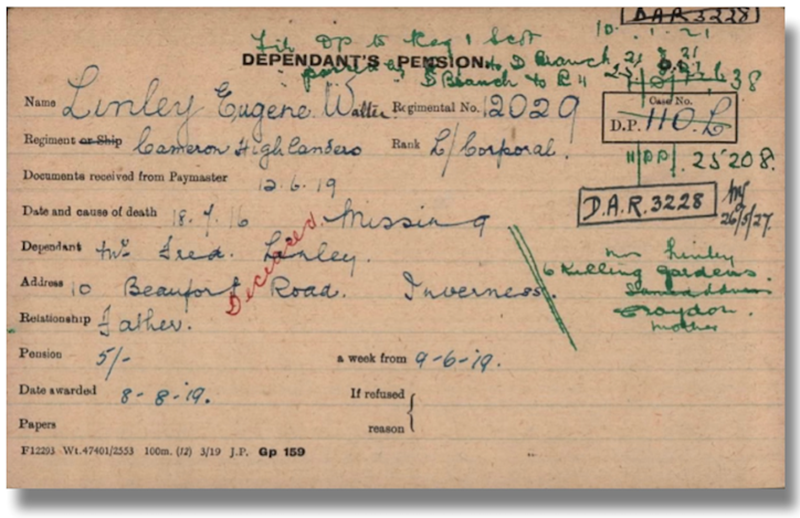 D.A.R. 3228
10 . 1 . 21
DEPENDANT'S PENSION.
to D Branch 21
D Branch to
Name Linley Eugene Walter Regimental No. 12029
Case No.
D.P. 110.L
Regiment or Ship Cameron Highlanders Rank L/Corporal.
25208.
Documents received from Paymaster 12.6.19
D.A.R. 3228
26/5/27.
Date and cause of death 18.7.16 Missing
Deceased
Dependant Mr Fred. Linley.
Mrs Linley
Address 10 Beaufort Road. Inverness.
6 Killing Gardens.
Croydon.
Mother
Relationship Father.
Pension 5/- a week from 9-6-19.
Date awarded 8-8-19. If refused
Papers reason
F12293 Wt.47401/2553 100m. (12) 3/19 J.P. Gp 159